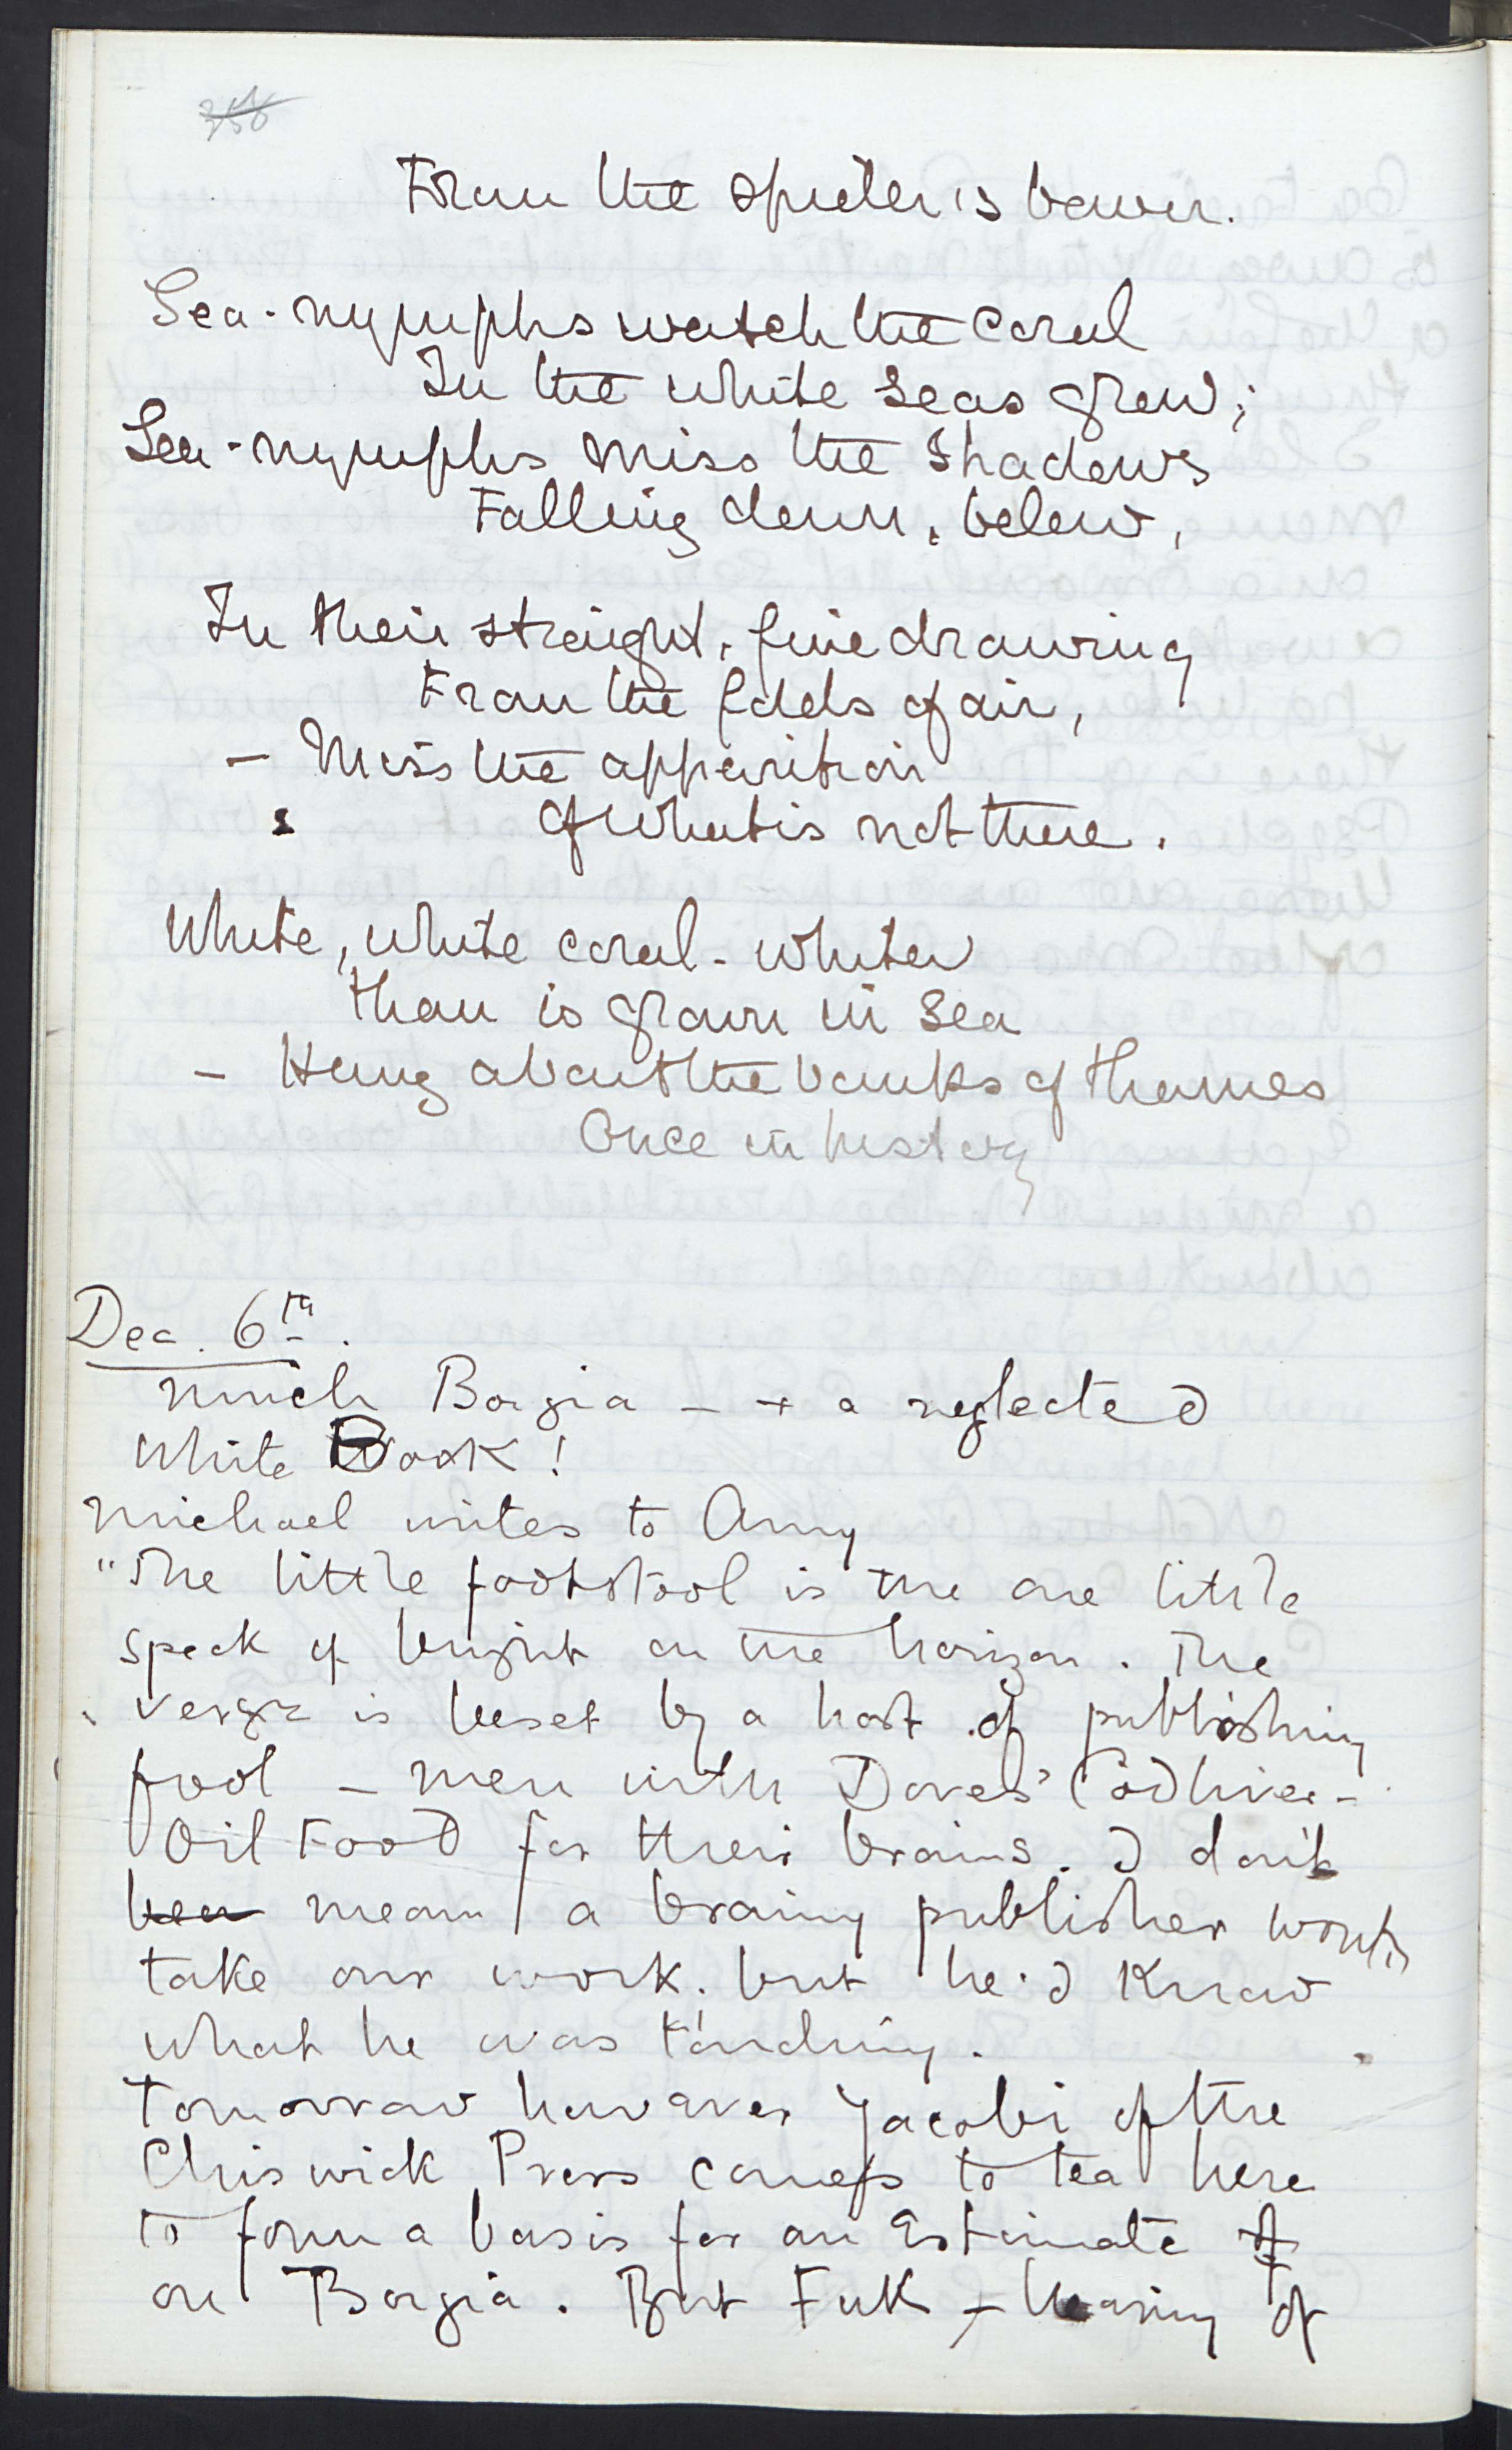 From the spider's bower.
Sea-nymphs watch the coral
In the white seas grow;
Sea-nymphs miss the shadows
Falling down, below,
In their straight, fine drawing
From the folds of air,
– Miss the apparition
Of what is not there.
White, white coral – whiter
Than is grown in sea
– Hung about the banks of Thames
Once in history
Dec. 6th.
Much Borgia – + a neglected
White Book!
Michael writes to Amy
"The little footstool is the one little
speck of bright on the horizon. The
verge is beset by a host of publishing
fool – men with Codliver-
Oil Food for their brains. I don't
mean a brainy publisher would
take our work. but he'd know
what he was
Tomorrow however Jacobi of the
Chiswick Press comes to tea here
to form a basis for an Estimate
on Borgia. But – hearing of